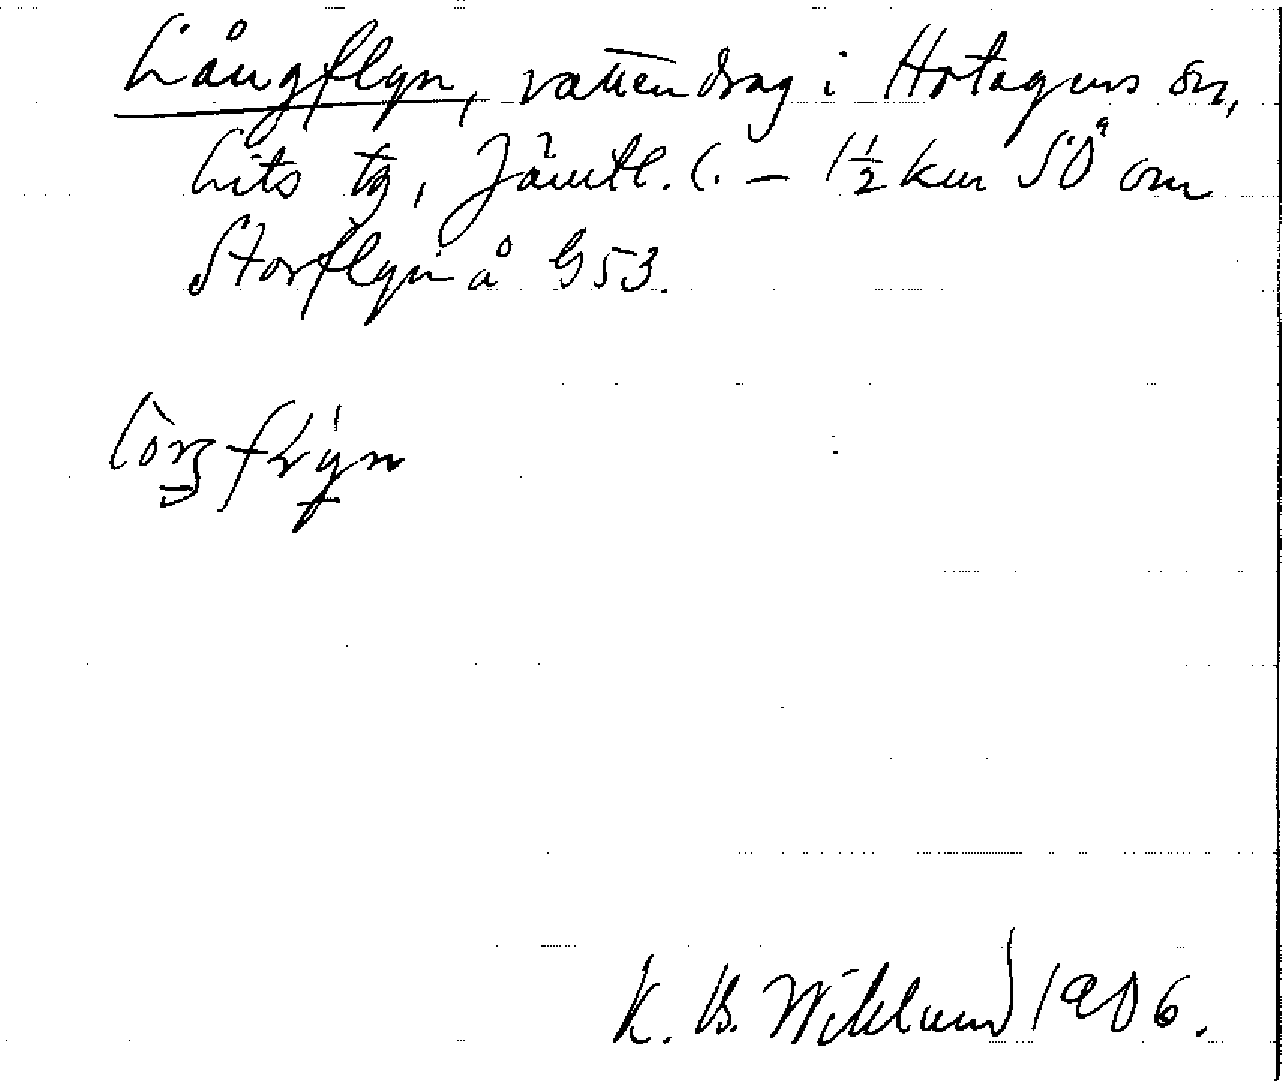 Långflyn, vattendrag i Hotagens sn,
Lits tg, Jämtl. l. – 1½ km SÖ om
Storflyn å G53.
K. B. Wiklund 1906.